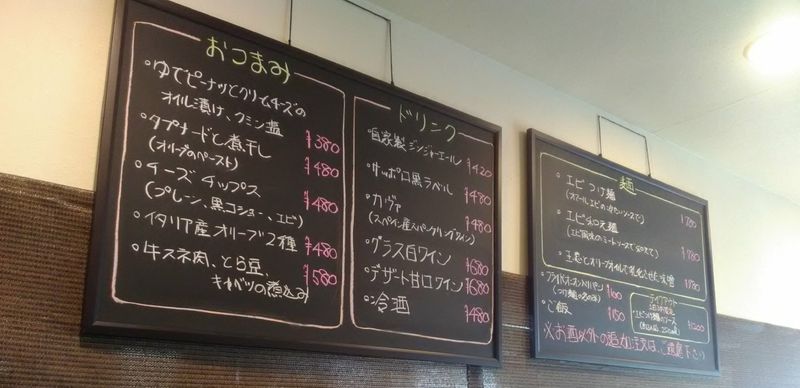 おつまみ
・ゆでピーナッツとクリームチーズの
オイル漬け、クミン塩 ¥380
・タプナードと煮干し
(オリーブのペースト) ¥480
・チーズ チップス
(プレーン、黒コショー、エビ) ¥480
・イタリア産オリーブ2種 ¥480
・牛スネ肉、とら豆、
キャベツの煮込み ¥580
ドリンク
・自家製ジンジャーエール ¥420
・サッポロ黒ラベル ¥480
・カヴァ
(スペイン産スパークリングワイン) ¥480
・グラス白ワイン ¥680
・デザート甘口ワイン ¥680
・冷酒 ¥480
麺
・エビつけ麺
(オマールエビの冷たいソースで) ¥780
・エビ和え麺
(エビ風味のミートソースで和えて) ¥780
とオリーブオイルで乳化させた ¥780
(つけ麺の) ¥100
・ご飯 ¥150
テイクアウト
・エビつけ麺のソース
¥1200
※お酒以外の追加注文は、ご遠慮下さい